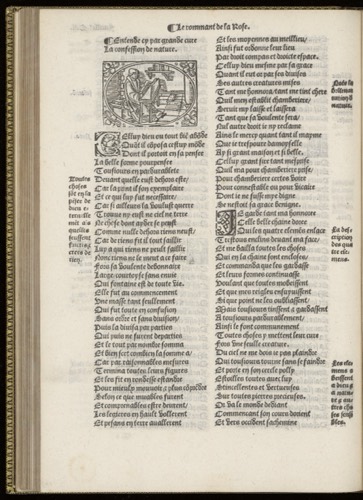 Le rommant de la Rose.
Entende cy par grande cure
La confession de nature.
Celluy dieu ou tout biē abōde
Quāt il cōposa ce stuy mōde
Dont il portoit en sa pensee
La belle forme pourpensee
Tousiours en pardurablete
Deuant quelle eust dehors este
Car la print il son exemplaire
Et ce qui luy fut necessaire
Car sailleurs la voulsist querre
Trouue ny eust ne ciel ne terre
Ne chose dont ayder se peust
Comme nulle dehors riens neust
Car de riens fist il tout saillir
Luy a qui riens ne peult faillir
Fors sa voulente debonnaire
Large courtoyse sans enuie
Qui fontaine est de toute vie.
Elle fut au commencement
Vne masse tant seullement
Qui fut toute en confusion
Sans ordre et sans diuision
Puis la diuisa par parties
Qui puis ne furent departies
Et le tout par nombre somma
Et bien scet combien la somme a
Car par raisonnables mesures
Termina toutes leurs figures
Et les fit en rondesse estandre
Pour mieulx mouuoir / plus cōprēdre
Selon ce que muables furent
Et comprenables estre deurent
Les legieres en hault vollerent
Et pesans en terre auallerent
Et les moyennes au meillieu /
Ainsi fut ordonne leur lieu
Par droit compas et droicte espace.
Celluy dieu mesme par sa grace
Quant il eut or par ses diuises
Ses autres creatures mises
Tant me honnora / tant me tint chere
Quil men establit chamberiere /
Seruir my laisse et laissera
Tant que sa voulente sera /
Nul autre droit ie ny reclame
Ains le mercy quant tant il mayme
Que ie trespoure damoyselle
Ay si grant maison et si belle.
Celluy grant sire tant me prise
Quil ma pour chamberiere prise /
Pour chamberiere certes voire
Pour connestable ou pour vicaire
Dont ie ne fusse mye digne
Se nestoit sa grace benigne.
Si garde tant ma honnoree
Celle belle chaine doree
Qui les quatre elemēs enlace
Trestous enclins deuant ma face /
Et me bailla toutes les choses
Qui en la chaine sont encloses /
Et commanda que les gardasse
Et leurs formes continuasse
Voulant que toutes mobeissent
Et que mes reigles ensuyuissent
Si que point ne les oubliassent /
Mais tousiours tinssent et gardassent
A tousiours pardurablement /
Ainsi le font communement
Toutes choses y mettent leur cure
Fors vne seulle creature.
Du ciel ne me dois ie pas plaindre
Qui tousiours tourne sans se faindre
Et porte en son cercle polly
Estoilles toutes auec luy
Stincellantes et vertueuses
Sur toutes pierres precieuses.
Or va le monde deduisant
Commencant son cours dorient
Et vers occident sachemine